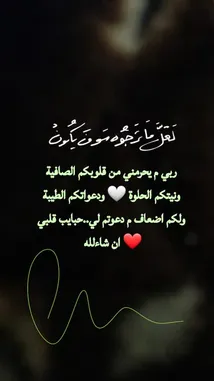 لَعَلَّ مَا نَرْجُوه سَوفَ يَكُونُ
ربي م يحرمني من قلوبكم الصافية
ونيتكم الحلوة 🤍 ودعواتكم الطيبة
ولكم اضعاف م دعوتم لي..حبايب قلبي
ان شاءلله ❤️